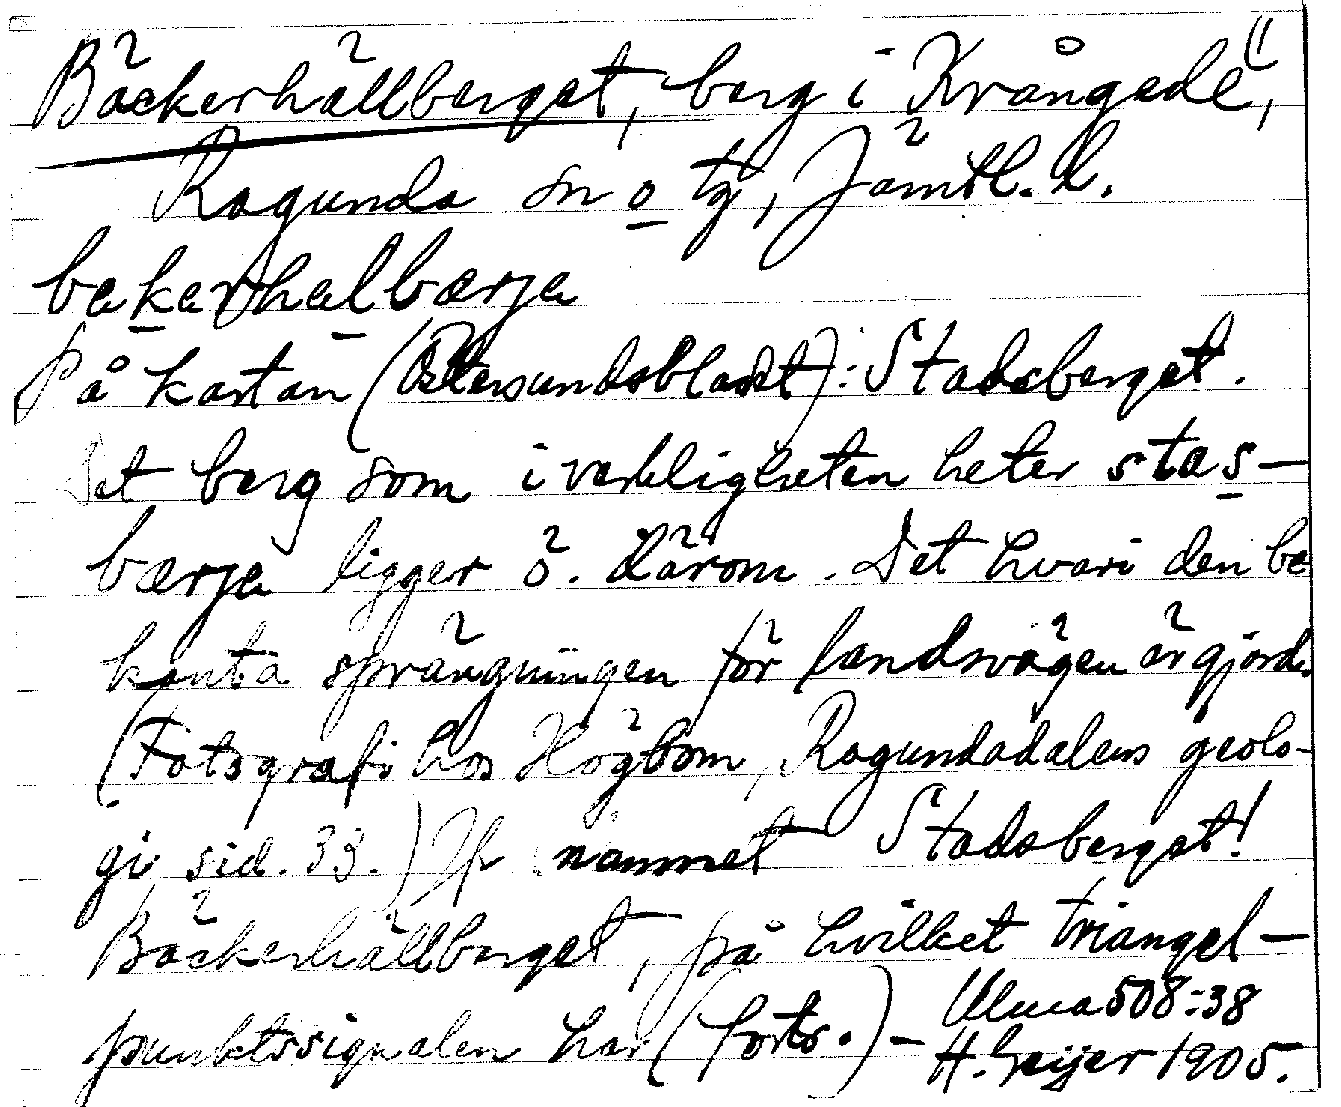 Bäckerhällberget, berg i Krångede",
Ragunda sn o tg, Jämtl. l.
bakerhalbærja
På kartan (Östersundsbladet): Stadsberget.
Det berg som i verkligheten heter stas-
bærja ligger ö. därom. Det hvari den be
kanta sprängningen för landsvägen är gjord
(Fotografi hos Högbom, Ragundadalens geolo-
gi sid. 33.) Jfr namnet Stadsberget!
Bäckerhällberget, på hvilket triangel-
punktssignalen har (forts.) -
Ulma 508:38
H. Geijer 1905.